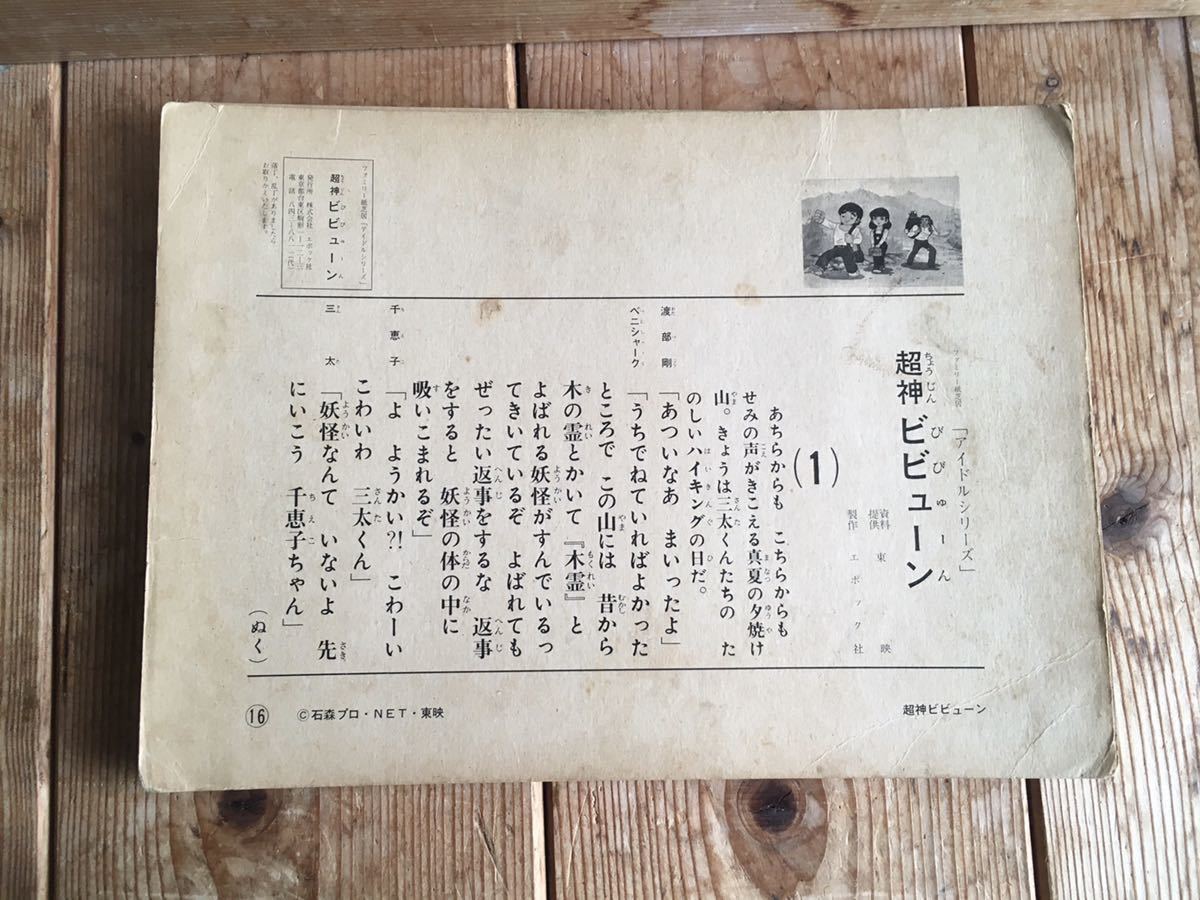 ファミリー紙芝居
「アイドルシリーズ」
超神ビビューン
ちょうじん びびゅーん
資料提供 東映
製作 エポック社
(1)
あちらからも こちらからも
せみの声がきこえる真夏の夕焼け
山。きょうは三太くんたちの た
のしいハイキングの日だ。
渡部剛
「あついなあ まいったよ」
ベニシャーク
「うちでねていればよかった
ところで この山には 昔から
木の霊とかいて『木霊』と
よばれる妖怪がすんでいるっ
てきいているぞ よばれても
ぜったい返事をするな 返事
をすると 妖怪の体の中に
吸いこまれるぞ」
千恵子
「よ ようかい?! こわーい
こわいわ 三太くん」
三太
「妖怪なんて いないよ 先
にいこう 千恵子ちゃん」
(ぬく)
ファミリー紙芝居「アイドルシリーズ」
超神ビビューン
発行所 株式会社 エポック社
落丁、乱丁がありましたら
お取りかえいたします。
超神ビビューン
©石森プロ・NET・東映
16